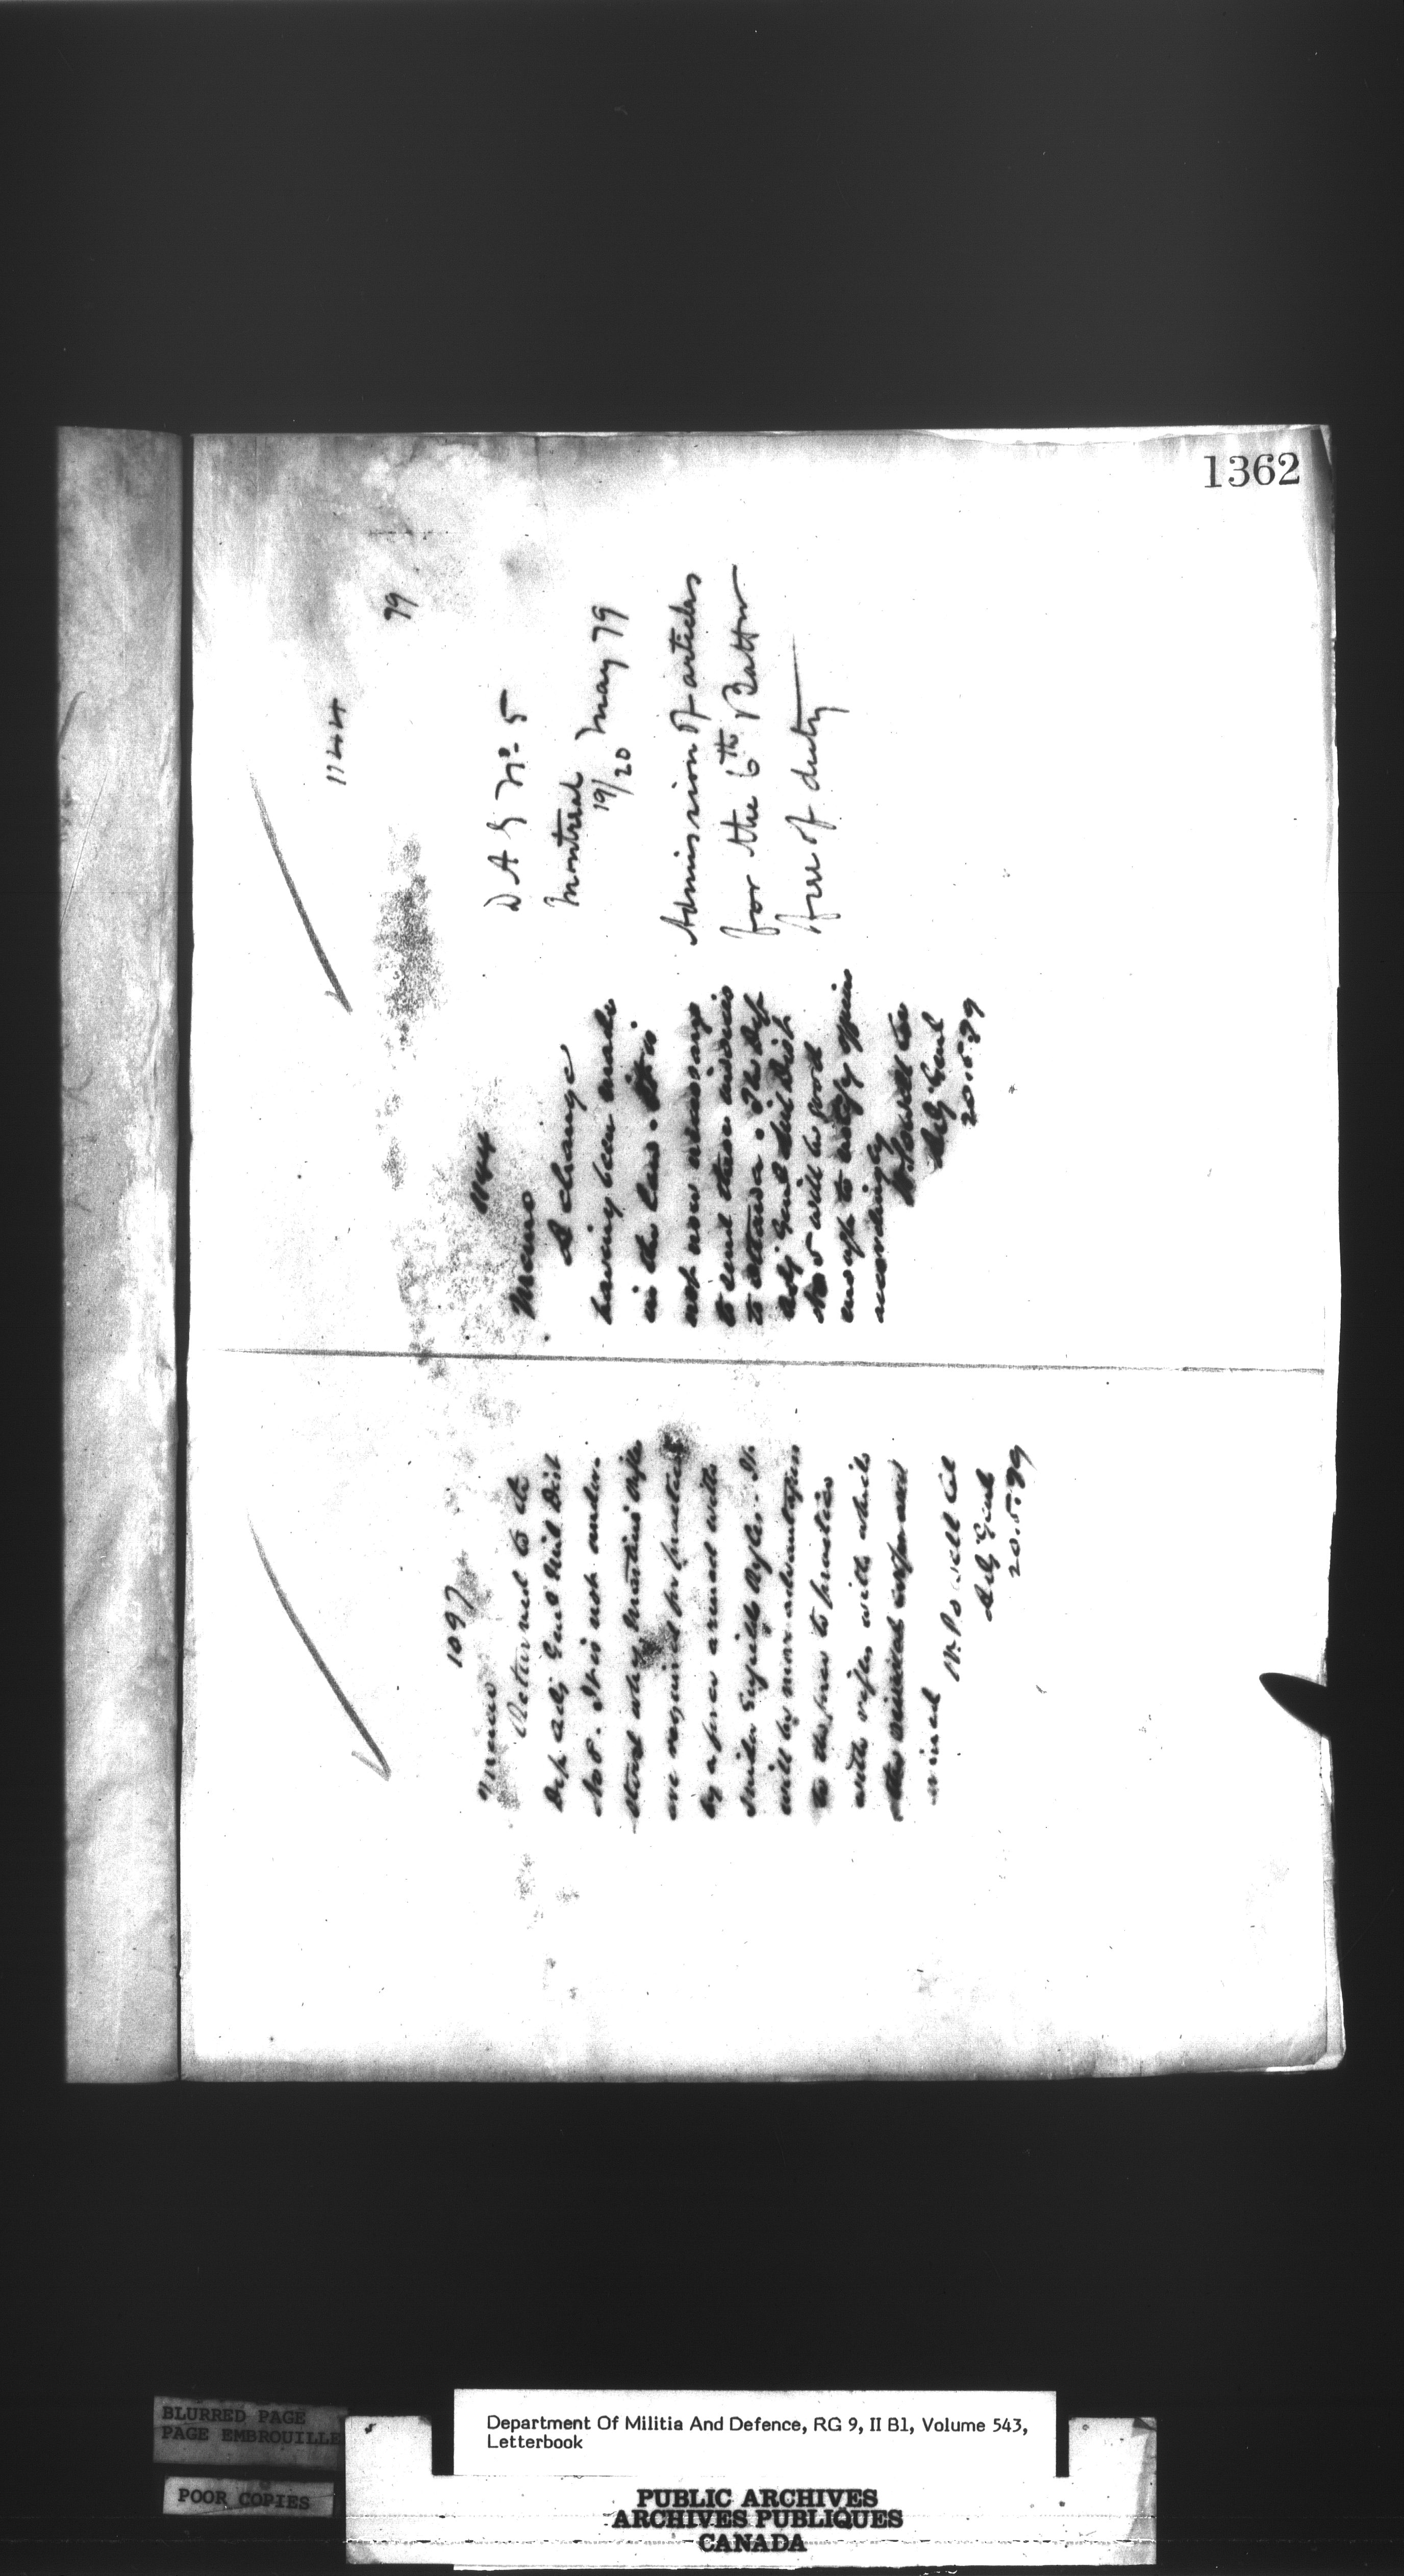 1362
1097
Memo
Returned to the
Dep Adj Genl Mil Dist
No 5. It is not under-
stood why Martini rifles
are required for practice
by a force armed with
Snider Enfield Rifles. It
will be more advantageous
to the force to practice
with rifles with which
W. Powell Col
Adj Genl
20.5.79
1144
79
D A G No 5
Montreal
19/20 May 79
Admission of articles
for the 6th Battn
free of duty
1144
Memo
A change
having been made
in the law. It is
not now necessary
to send these
to Ottawa. The Dep
Adj Genl Mil Dist
No 5 will be good
enough to notify
accordingly
W. Powell Col
Adj Genl
20.5.79
BLURRED PAGE
PAGE EMBROUILLE
POOR COPIES
Department Of Militia And Defence, RG 9, II B1, Volume 543,
Letterbook
PUBLIC ARCHIVES
ARCHIVES PUBLIQUES
CANADA